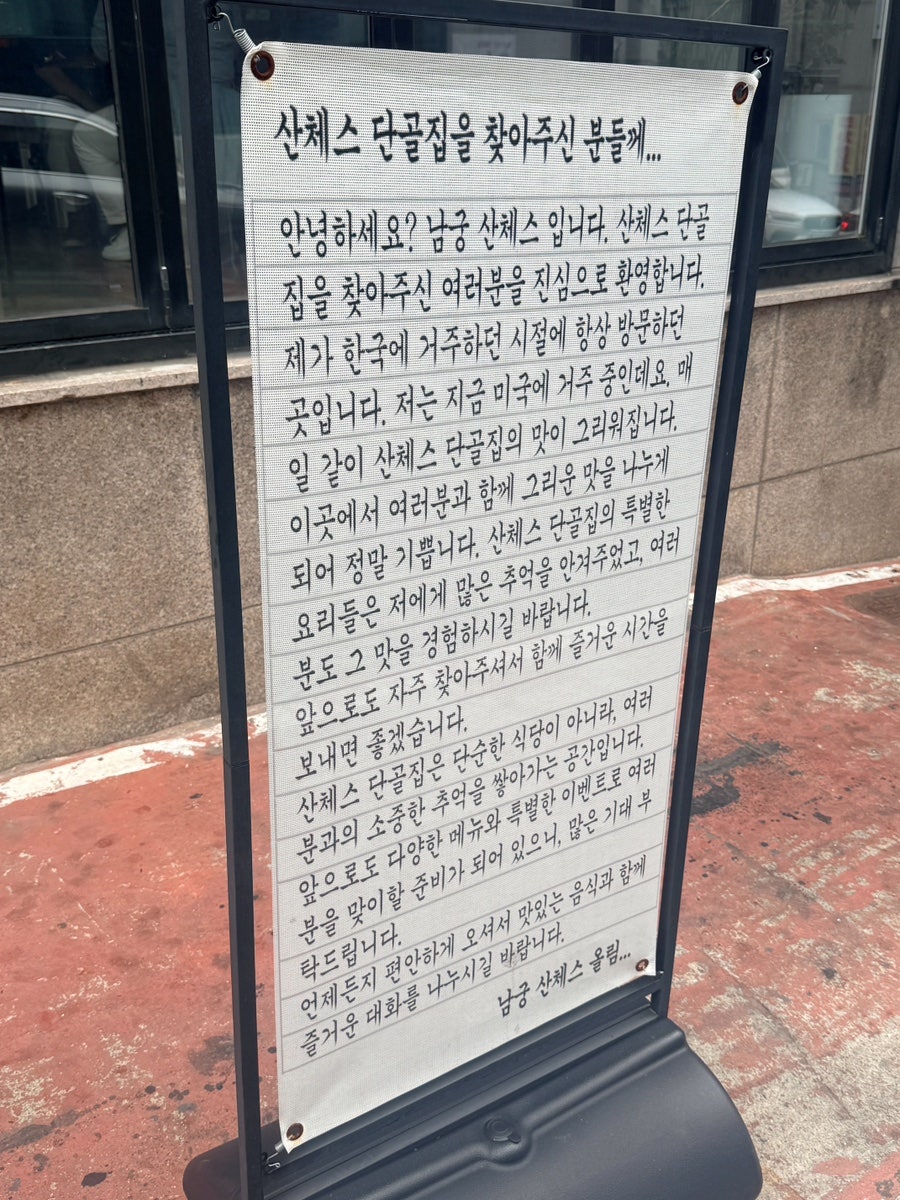 산체스 단골집을 찾아주신 분들께...
안녕하세요? 남궁 산체스 입니다. 산체스 단골
집을 찾아주신 여러분을 진심으로 환영합니다.
제가 한국에 거주하던 시절에 항상 방문하던
곳입니다. 저는 지금 미국에 거주 중인데요, 매
일 같이 산체스 단골집의 맛이 그리워집니다.
이곳에서 여러분과 함께 그리운 맛을 나누게
되어 정말 기쁩니다. 산체스 단골집의 특별한
요리들은 저에게 많은 추억을 안겨주었고, 여러
분도 그 맛을 경험하시길 바랍니다.
앞으로도 자주 찾아주셔서 함께 즐거운 시간을
보내면 좋겠습니다.
산체스 단골집은 단순한 식당이 아니라, 여러
분과의 소중한 추억을 쌓아가는 공간입니다.
앞으로도 다양한 메뉴와 특별한 이벤트로 여러
분을 맞이할 준비가 되어 있으니, 많은 기대 부
탁드립니다.
언제든지 편안하게 오셔서 맛있는 음식과 함께
즐거운 대화를 나누시길 바랍니다.
남궁 산체스 올림...